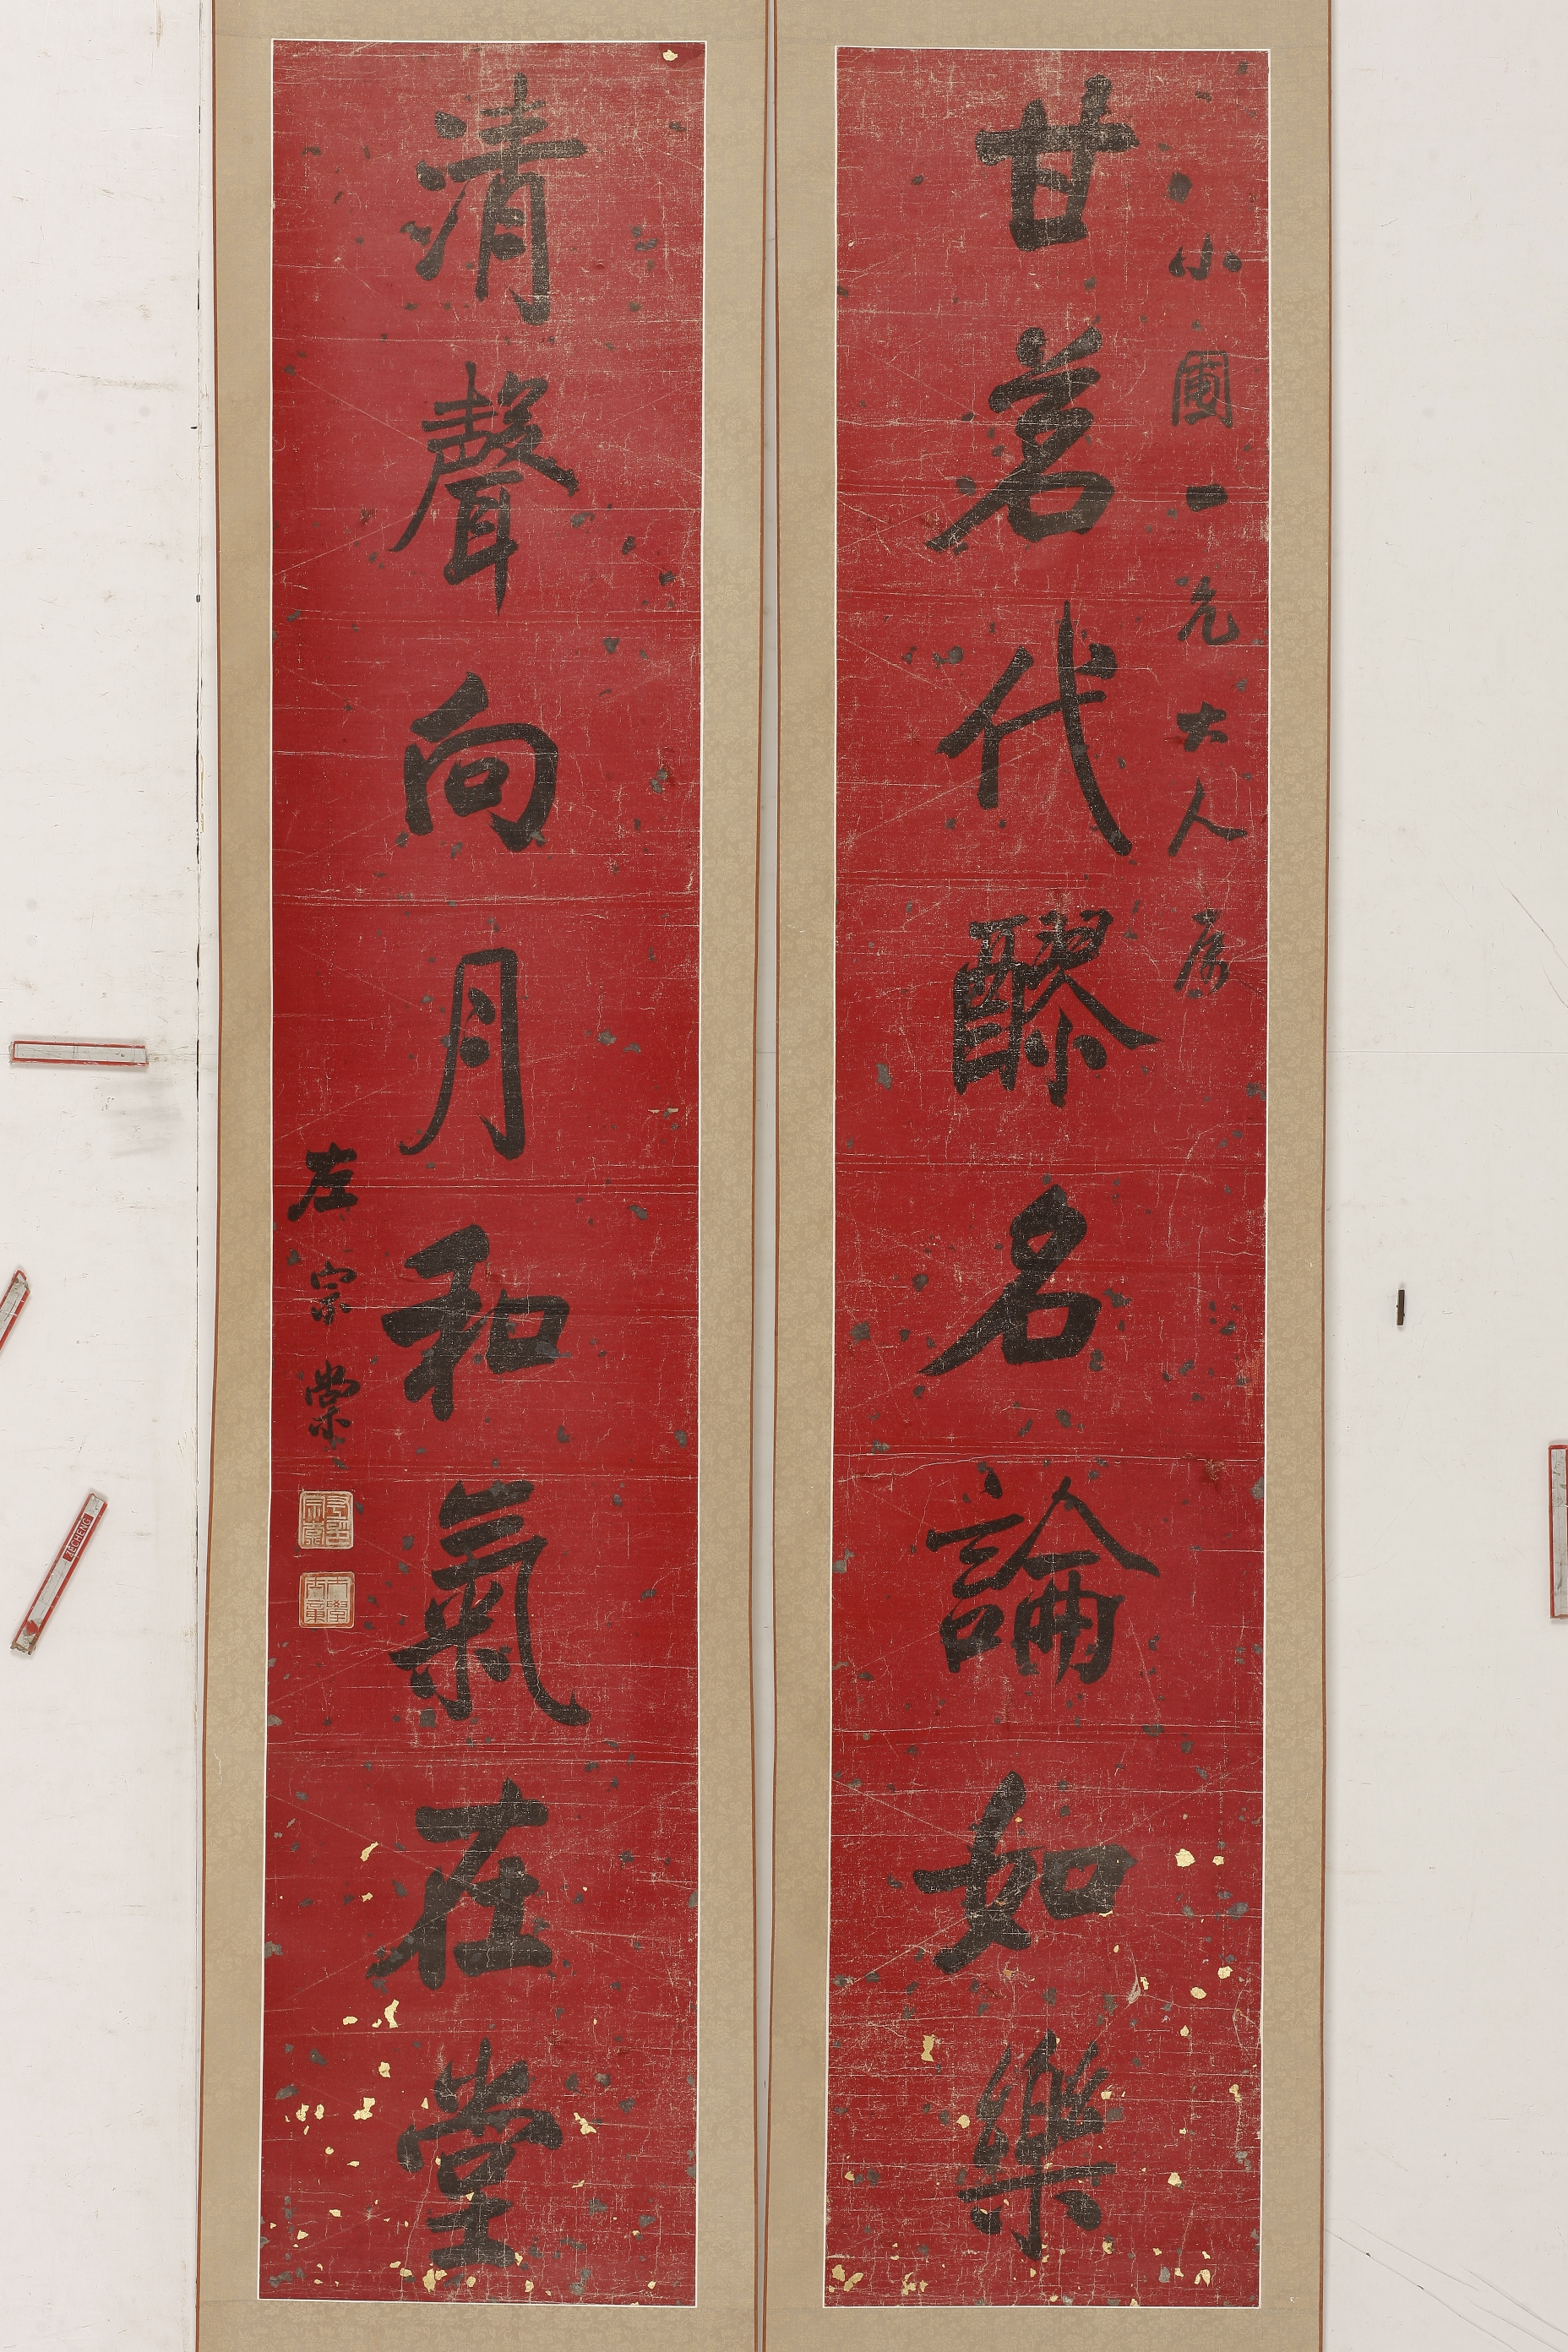 小圃一兄大人属
甘茗代醪名論如樂
清聲向月和氣在堂
左宗棠
KECHENG